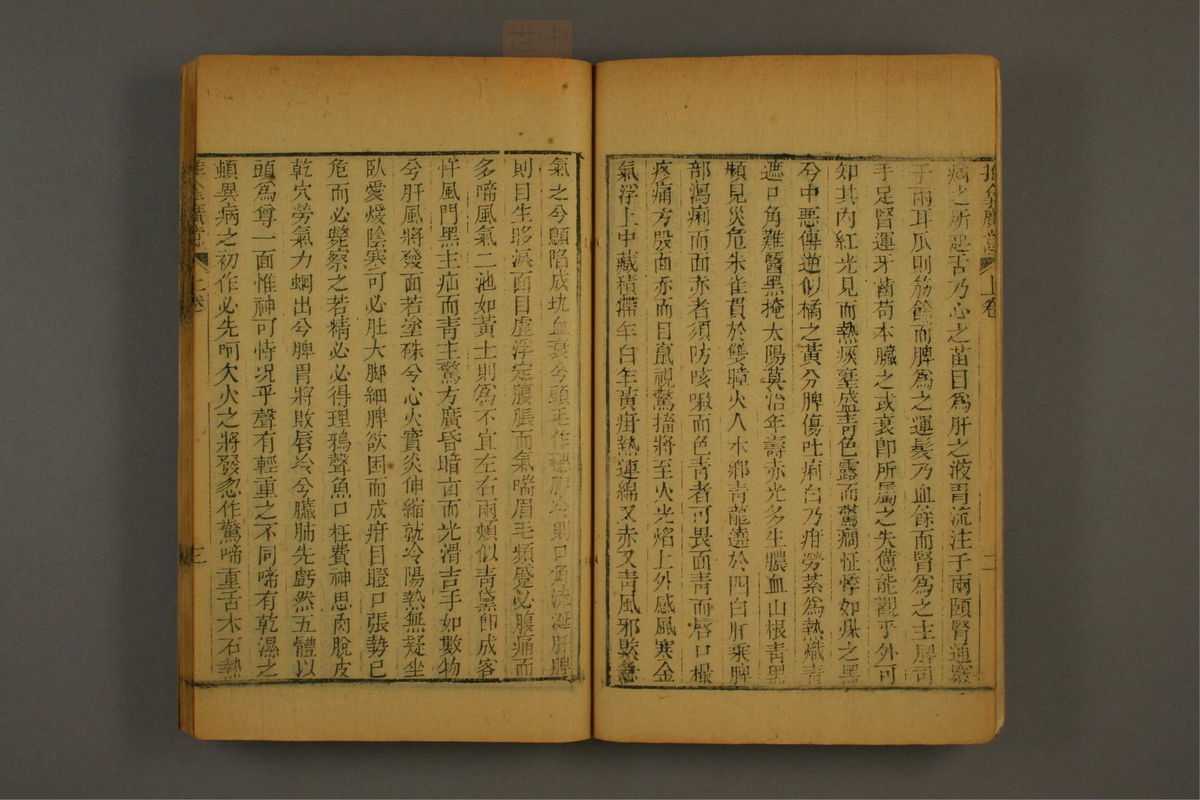 推拿廣意 上卷 二
竅之所。舌乃心之苗目爲肝之液胃流注于兩頤腎通竅
于兩耳爪則筋餘而脾爲之運髮乃血餘而腎爲之主脾司
手足腎運牙齒苟本臟之或衰卽所屬之失憊能觀乎外可
知其內紅光見而熱痰壅盛青色露而驚癎怔悸如煤之黑
兮中惡傳逆似橘之黃兮脾傷吐痢白乃疳勞紫爲熱熾青
遮口角難醫黑掩太陽莫治年壽赤光多生膿血山根青黑
頻見災危朱雀貫於雙瞳火入水鄉青龍遶於四白肝乘脾
部瀉痢而面赤者須防咳嗽而色青者可畏面青而唇口撮
疼痛方殷面赤而目竄視驚搐將至火光焰上外感風寒金
氣浮上中藏積滯乍白乍黃疳熱連綿又赤又青風邪緊急
氣乏兮顖陷成坑血衰兮頭毛作穗脾冷則口角流涎肝脾
則目生眵淚面目虛浮定腹脹而氣喘眉毛頻蹙必腹痛而
多啼風氣二池如黃土則爲不宜左右兩頰似青黛卽成客
忤風門黑主疝而青主驚方廣昏暗㐫而光滑吉手如數物
兮肝風將發面若塗硃兮心火實炎伸縮就冷陽熱無疑坐
臥愛煖陰寒可必肚大脚細脾欲困而成疳目瞪口張勢已
危而必斃察之若精必必得理鴉聲魚口枉費神思肉脫皮
乾空勞氣力蛔出兮脾胃將敗唇冷兮臟腑先虧然五體以
頭爲尊一面惟神可恃况乎聲有輕重之不同啼有乾濕之
頓異病之初作必先呵欠火之將發忽作驚啼重舌木舌熱
推拿廣意 上卷 三